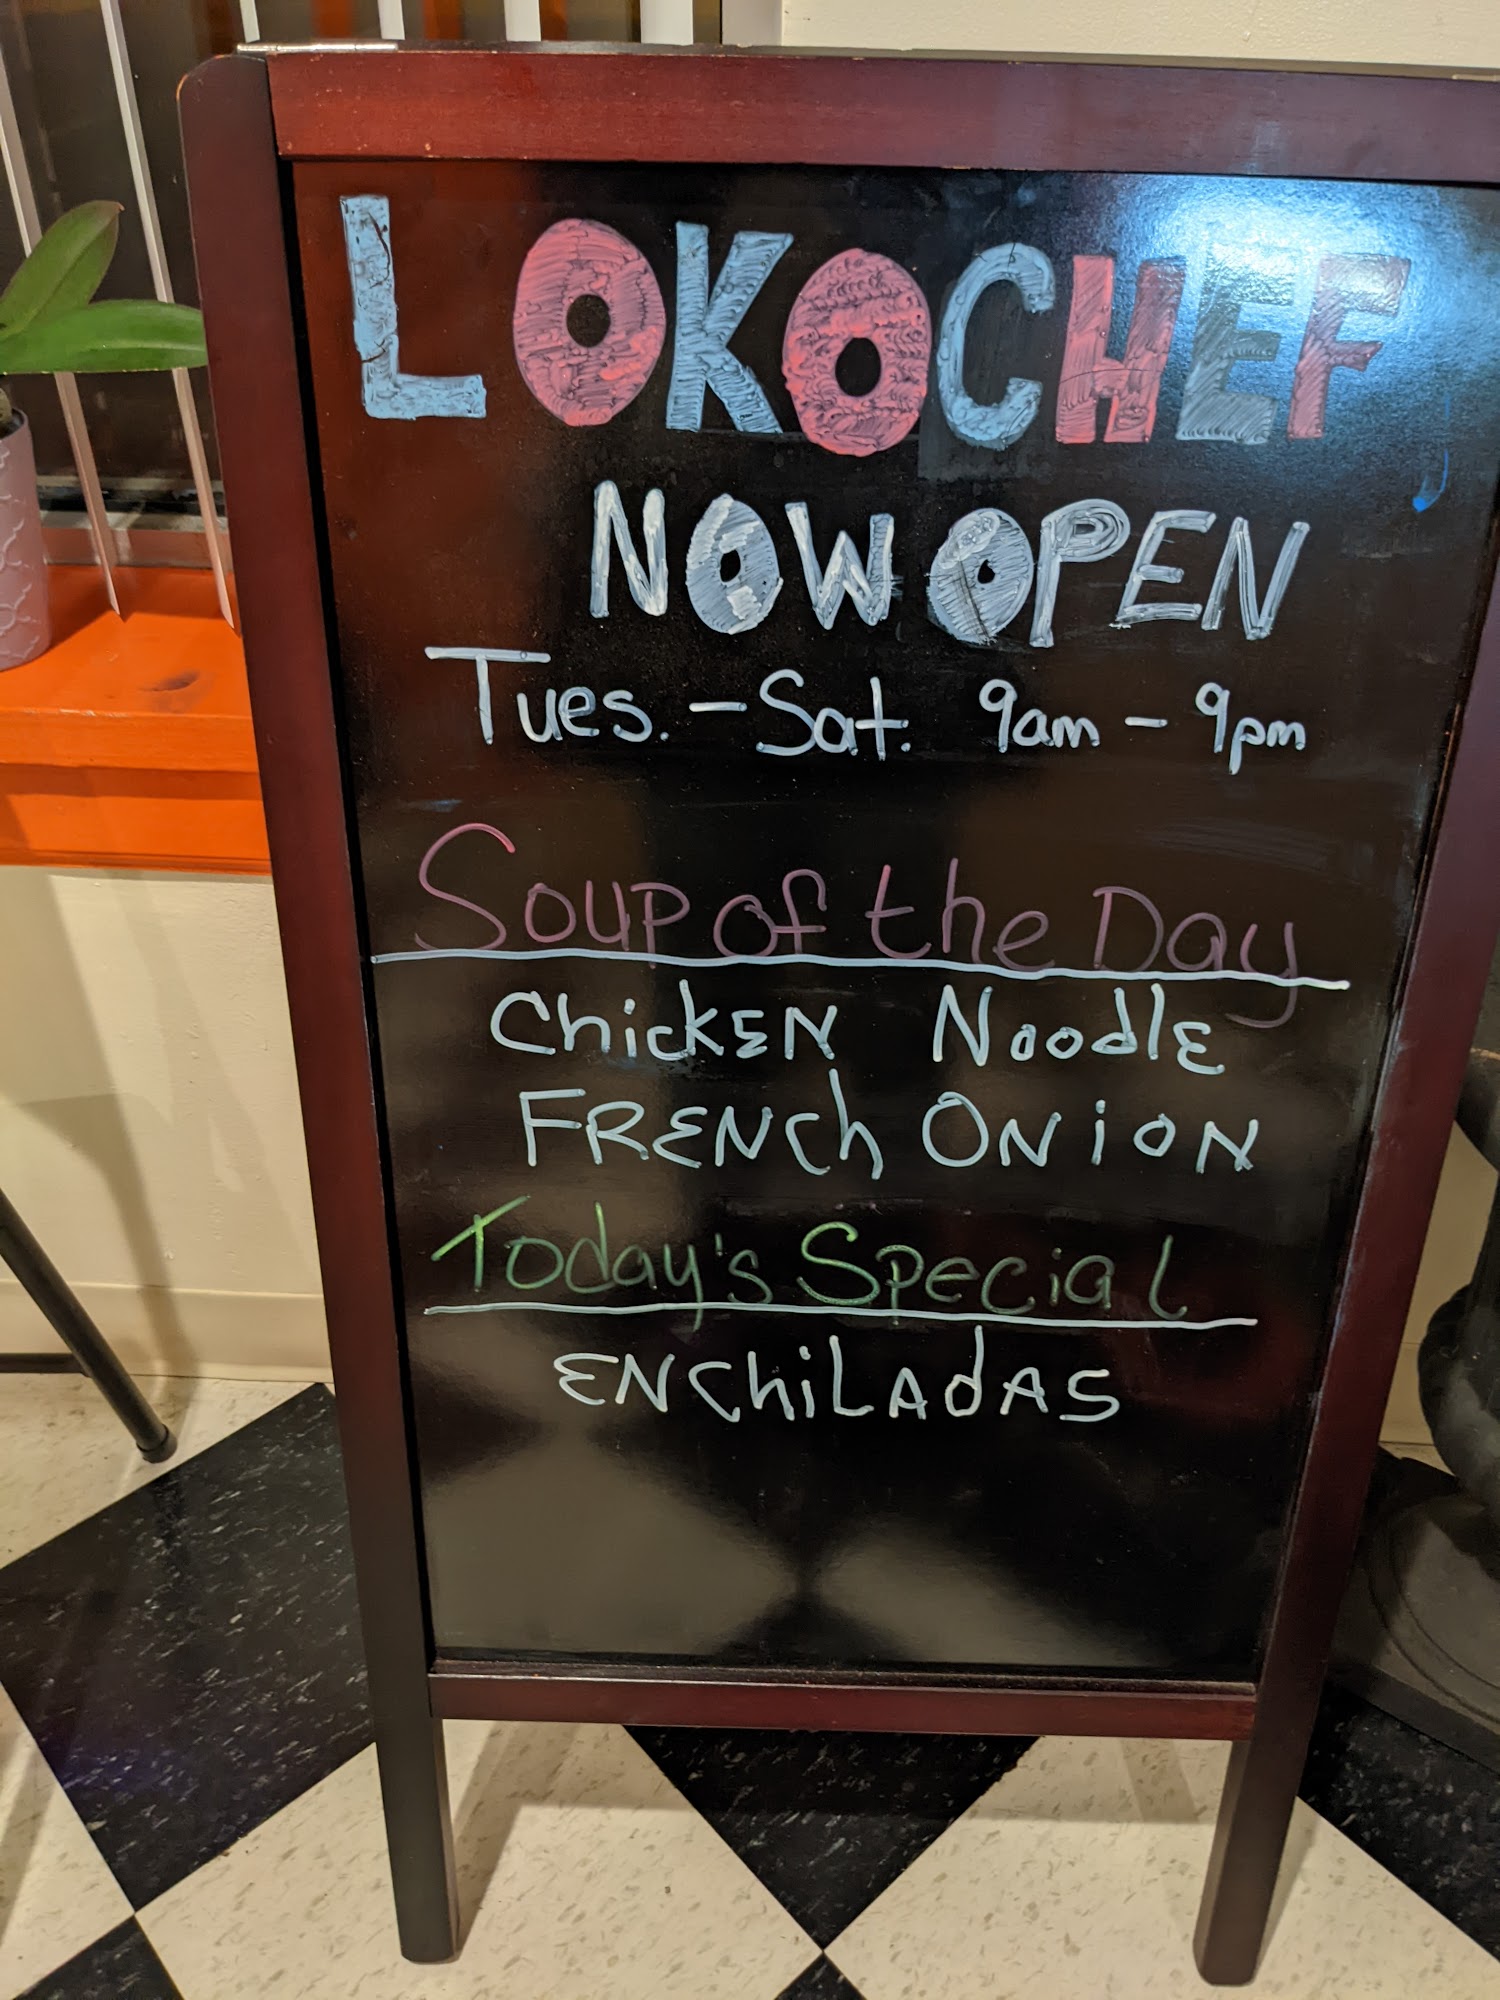 LOKOCHEF
NOW OPEN
Tues. - Sat. 9am - 9pm
Soup of the Day
ChickEN Noodle
FRENCh ONiON
Today's Special
ENChiLAdAS